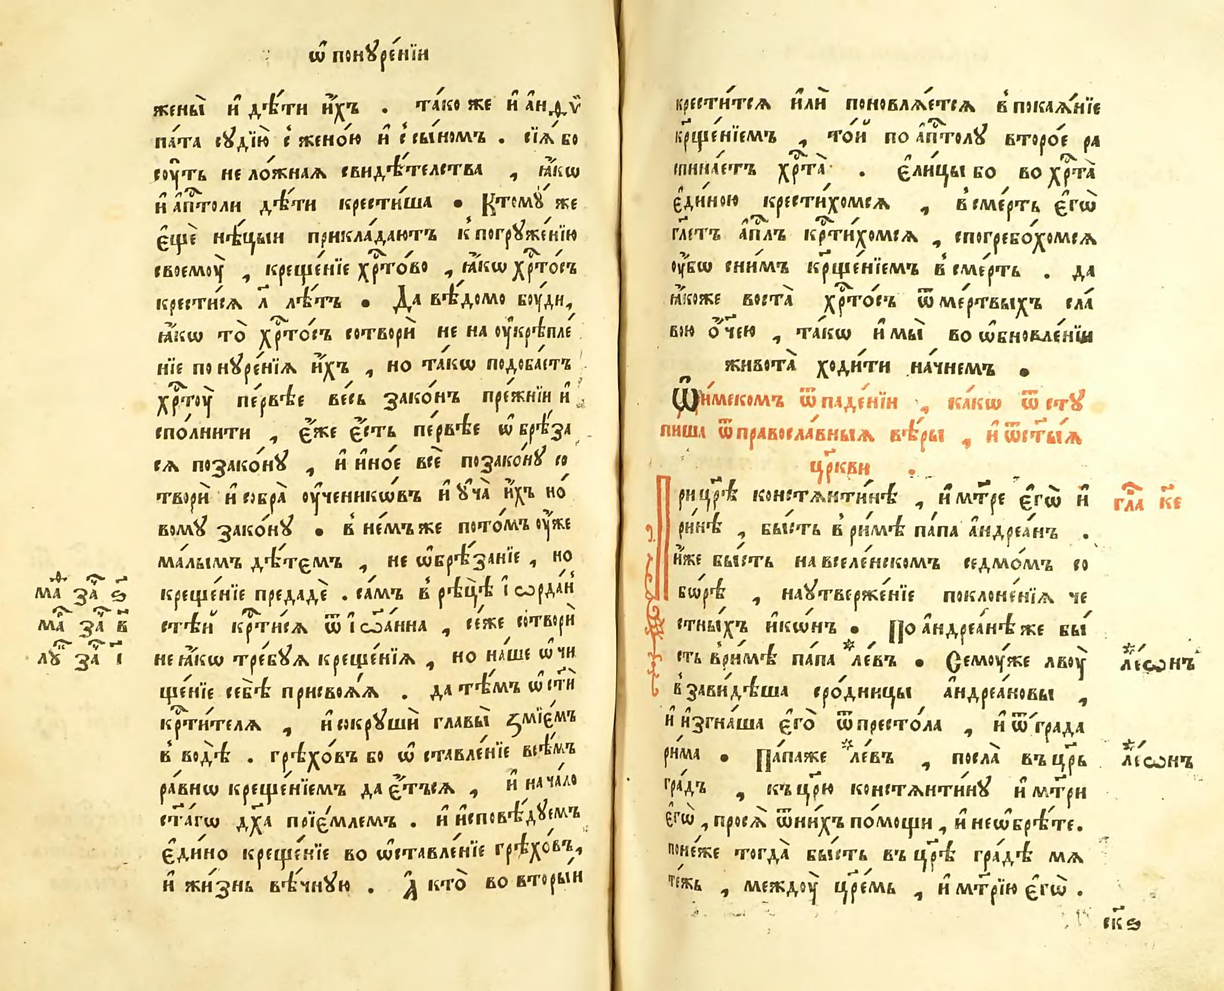 ѿ понꙋре́нїи
жены̀ и҆ дѣ́ти и҆́хъ . тако́же и҆ анѳѵ̈
па́та сꙋдїю̀ с̾ жено́ю и҆ с̾ сы́номъ . сїѧ́ бо
соу́ть не ло́жнаѧ свидѣ́телства , ꙗ҆́кѡ
и҆ а҆пⷭ҇толи дѣ́ти крести́ша . Ктомꙋ́ же
є҆щѐ нѣ́цыи прикла́даютъ к̾ погрꙋже́нїю
своемоу̀ , креще́нїе хрⷭ҇то́во , ꙗ҆́кѡ хрⷭ҇то́съ
крести́сѧ л҃ лѣ́тъ . Да вѣ́домо боу́ди,
ꙗ҆́кѡ то̀ хрⷭ҇то́съ сотворѝ не на оу҆крѣпле́
нїе понꙋре́нїѧ и҆́хъ , но та́кѡ подоба́етъ
хрⷭ҇тоу̀ пе́рвѣе весь зако́нъ пре́жнїи и҆
спо́лнити , є҆́же є҆́сть пе́рвѣе ѡ҆брѣ́за
сѧ позако́нꙋ , и҆ и҆но́е всѐ позако́нꙋ со
творѝ и҆ собра̀ оу҆ченикѡ́въ и҆ ᲂу҆ча̀ и҆́хъ но́
вомꙋ зако́нꙋ . в̾ не́мъже пото́мъ оу҆́же
ма́лымъ дѣ́темъ , не ѡ҆брѣ́занїе , но
креще́нїе предадѐ . са́мъ в̾ рѣ́цѣ і҆ѻрда́н
стѣ́й крⷭ҇ти́сѧ ѿ і҆ѡа́нна , се́же сотворѝ
не ꙗ҆́кѡ тре́бꙋѧ креще́нїѧ , но на́ше ѡ҆чи
ще́нїе себѣ̀ присвоѧ́ѧ . да тѣ́мъ ѡ҆ст҃и́тъ
крⷭ҇ти́телѧ , и҆ сокрꙋшѝ главы̀ змїе́мъ
в̾ водѣ̀ . грѣхо́въ бо ѡ҆ставле́нїе всѣ́мъ
ра́внѡ креще́нїемъ дае́тъсѧ , и҆ нача́ло
ст҃а́гѡ дх҃а прїе́млемъ . и҆ и҆сповѣ́дꙋемъ
є҆ди́но креще́нїе во ѡ҆ставле́нїе грѣхо́въ,
и҆ жи́знь вѣ́чнꙋю . А҆ кто̀ во вторы́и
маⷴ҇ заⷱ҇ ѕ҃
маⷬ҇ заⷱ҇ в҃
лꙋⷦ҇ заⷱ҇ і҃
крести́тсѧ и҆лѝ поновлѧ́етсѧ в̾ покаѧ́нїе
крⷭ҇ще́нїемъ , то́й по а҆пⷭ҇толꙋ второ́е ра
спина́етъ хрⷭ҇та̀ . є҆ли́цы бо во хрⷭ҇та̀
є҆ди́ною крести́хомсѧ , в̾ сме́рть є҆гѡ̀
гл҃етъ а҆пⷭ҇лъ крⷭ҇ти́хомсѧ , спогребо́хомсѧ
оу҆́бѡ сни́мъ крⷭ҇ще́нїемъ в̾ сме́рть . да
ꙗ҆́коже воста̀ хрⷭ҇то́съ ѿ ме́ртвыхъ сла́
вою ѻ҆ч҃ею , та́кѡ и҆ мы̀ во ѡ҆бновле́нїи
живота̀ ходи́ти на́чнемъ .
Ѡ҆ ри́мскомъ ѿпаде́нїи , ка́кѡ ѿстꙋ
пи́ша ѿ правосла́вныѧ вѣ́ры , и҆ ѿ ст҃ы́ѧ
цр҃кви .
При цр҃ѣ̀ констѧнти́нѣ , и҆ мт҃ре є҆гѡ̀ и҆
ри́нѣ , бы́сть в̾ ри́мѣ па́па а҆ндреа́нъ .
и҆́же бы́сть на вселе́нскомъ седмо́мъ со
бо́рѣ , на ᲂу҆твержє́нїе поклоне́нїѧ че
стны́хъ и҆кѡ́нъ . По а҆ндреа́нѣ же бы́
сть в̾ ри́мѣ па́па *ле́въ . Семоу́же лвоу̀
в̾зави́дѣша сро́дницы а҆ндреа́новы ,
и҆ и҆згна́ша є҆го̀ ѿ престо́ла , и҆ ѿ гра́да
ри́ма . Па́паже *ле́въ , посла̀ въ цр҃ь
гра́дъ , къ цр҃ю̀ констѧнти́нꙋ и҆ мт҃ри
є҆гѡ̀ , просѧ̀ ѿ ни́хъ по́мощи , и҆ не ѡ҆брѣ́те.
поне́же тогда̀ бы́сть въ цр҃ѣ̀ гра́дѣ мѧ
те́жь , междоу̀ цр҃е́мъ , и҆ мт҃рїю є҆гѡ̀ .
гла҃ к҃е
*ле́ѡнъ
*ле́ѡнъ
ск҃ѕ